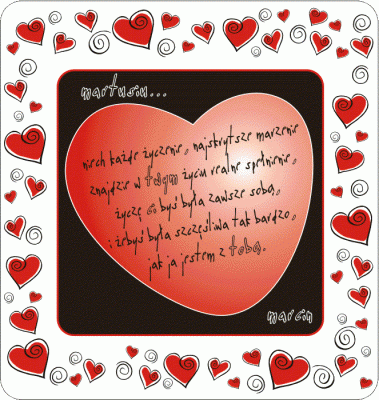 martusiu...
niech każde życzenie, najskrytsze marzenie
znajdzie w twym życiu realne spełnienie,
życzę ci byś była zawsze sobą,
i żebyś była szczęśliwa tak bardzo,
jak ja jestem z tobą.
marcin